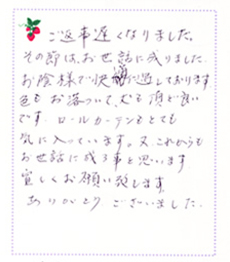 ご返事遅くなりました。
その節は、お世話に成りました。
お陰様で快適に過しております
色も お落ついて、とても 頂き良い
です。ロールカーテンもとても
気に入っています。又、これからも
お世話に成る事と思います
宜しくお願い致します。
ありがとうございました。